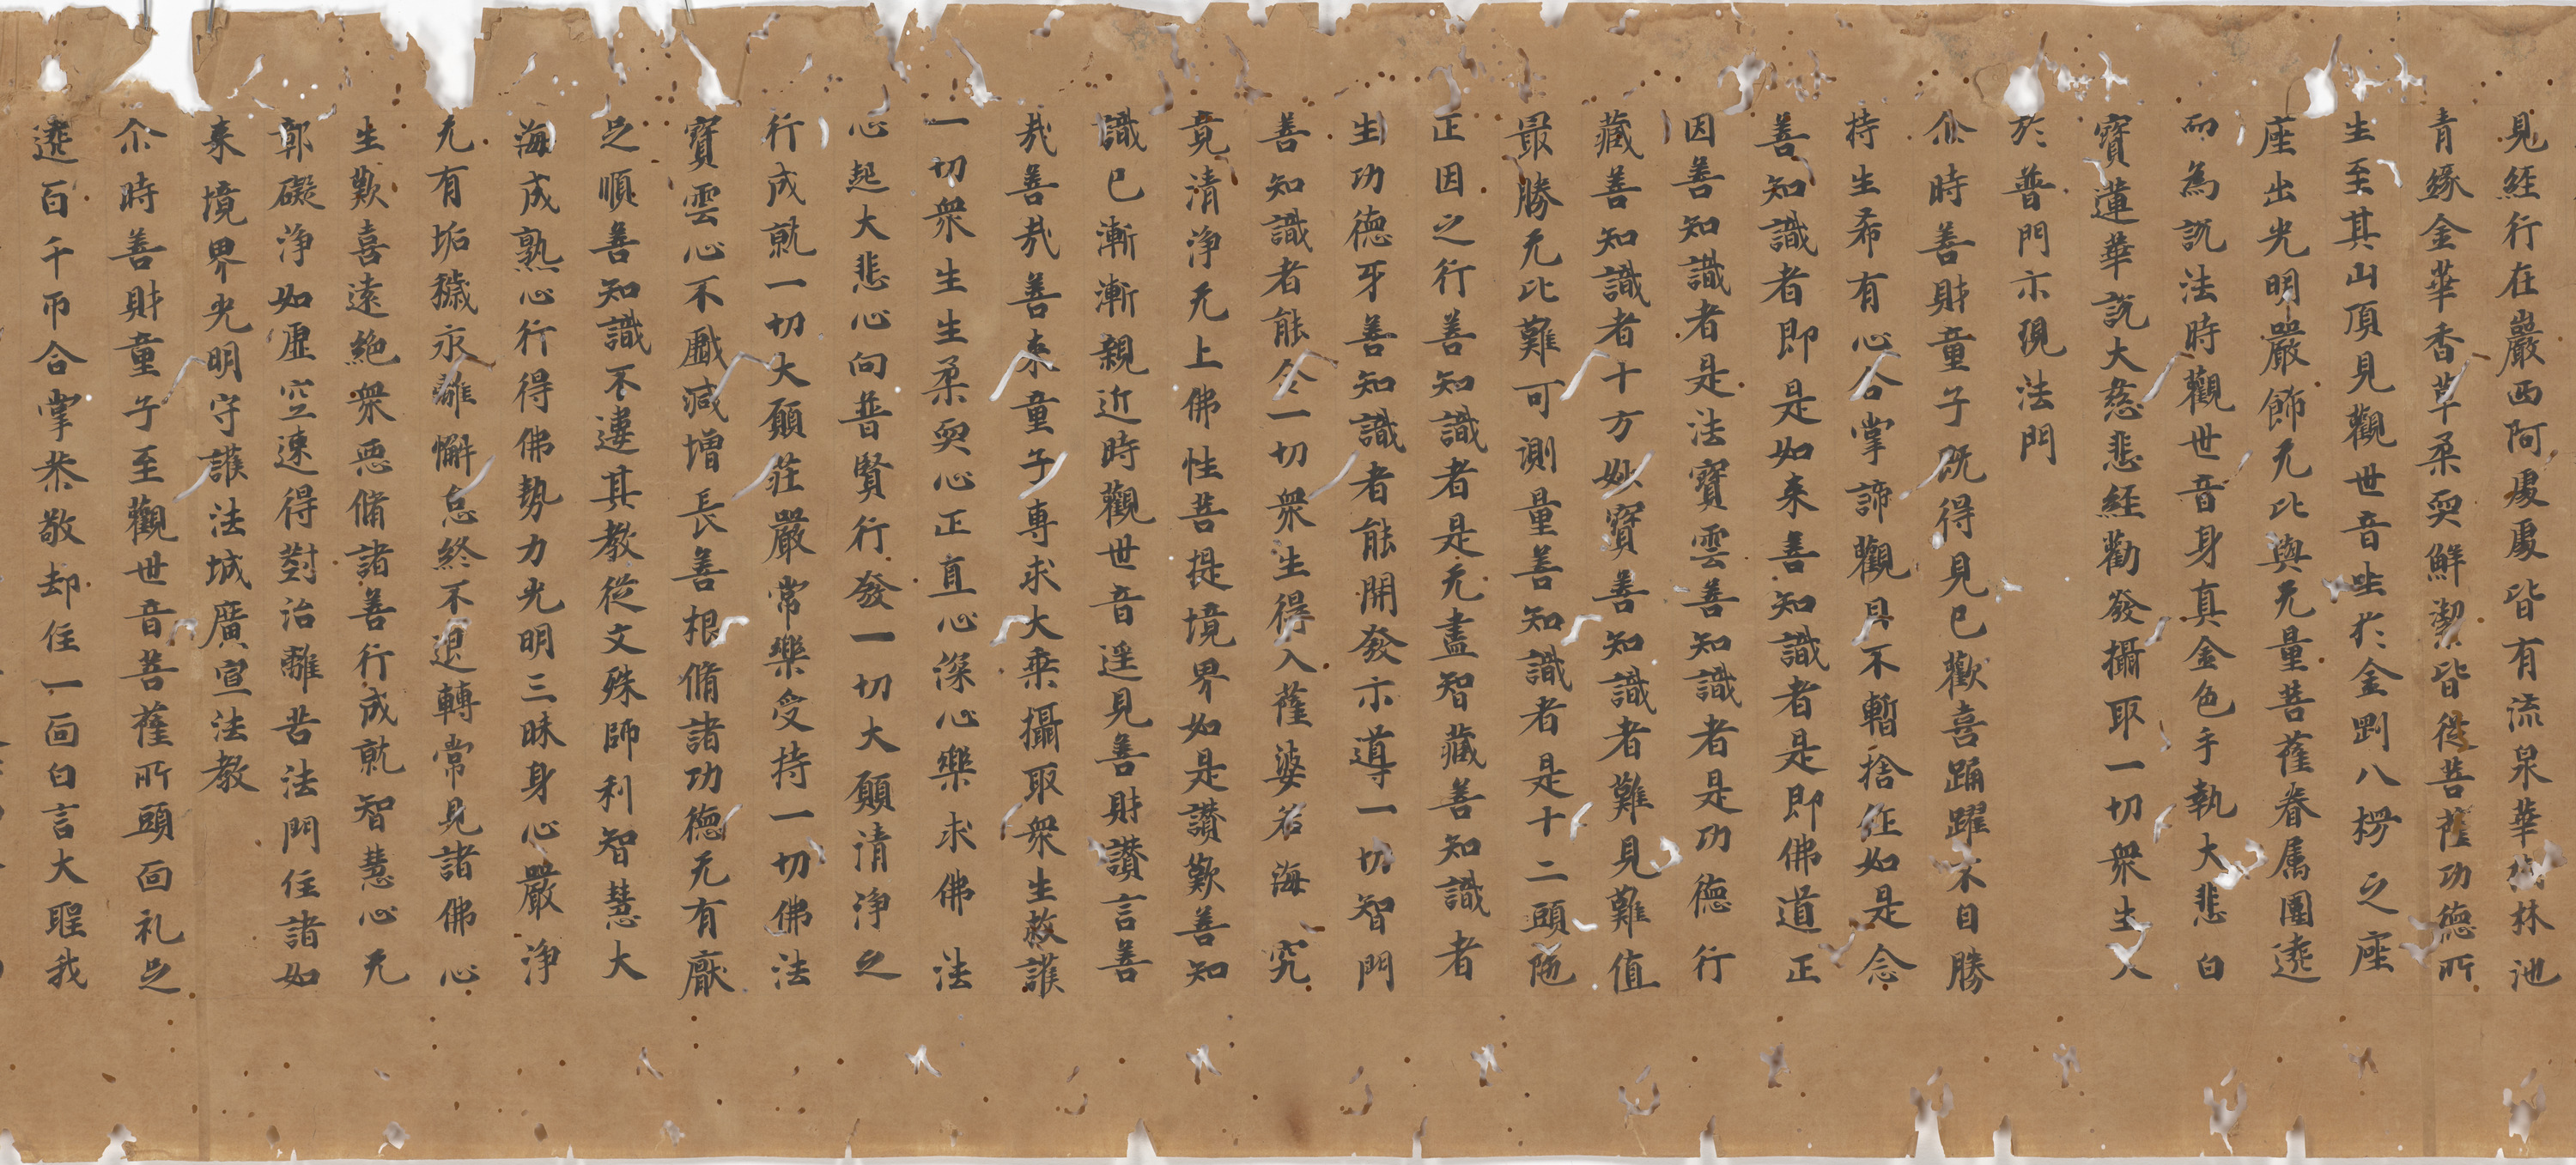 見經行在巖西阿處處皆有流泉華樹林池
青緑金華香草柔耎鮮潔皆從菩薩功德所
生至其山頂見觀世音坐於金剛八楞之座
座出光明嚴飾无比與无量菩薩眷属圍遶
而為説法時觀世音身真金色手執大悲白
寶蓮華説大慈悲經勸發攝取一切衆生入
於普門示現法門
尒時善財童子既得見已歡喜踊躍不自勝
持生希有心合掌諦觀目不暫捨作如是念
善知識者即是如来善知識者是即佛道正
因善知識者是法寶雲善知識者是功德行
藏善知識者十方妙寶善知識者難見難值
最勝无比難可測量善知識者是十二頭陁
正因之行善知識者是无盡智藏善知識者
生功德牙善知識者能開發示導一切智門
善知識者能令一切衆生得入薩婆若海究
竟清浄无上佛性菩提境界如是讃歎善知
識已漸漸親近時觀世音遥見善財讃言善
㢤善㢤善来童子專求大乗攝取衆生救護
一切衆生生柔耎心正直心深心樂求佛法
心起大悲心向普賢行發一切大願清浄之
行成就一切大願莊嚴常樂受持一切佛法
寶雲心不虧減增長善根脩諸功德无有厭
之順善知識不違其教從文殊師利智慧大
海成熟心行得佛勢力光明三昧身心嚴浄
无有垢穢永離懈怠終不退轉常見諸佛心
生歡喜遠絶衆惡脩諸善行成就智慧心无
鄣礙浄如虚空速得對治離苦法門住諸如
来境界光明守護法城廣宣法教
尒時善財童子至觀世音菩薩所頭面礼足
遶百千帀合掌恭敬却住一面白言大聖我